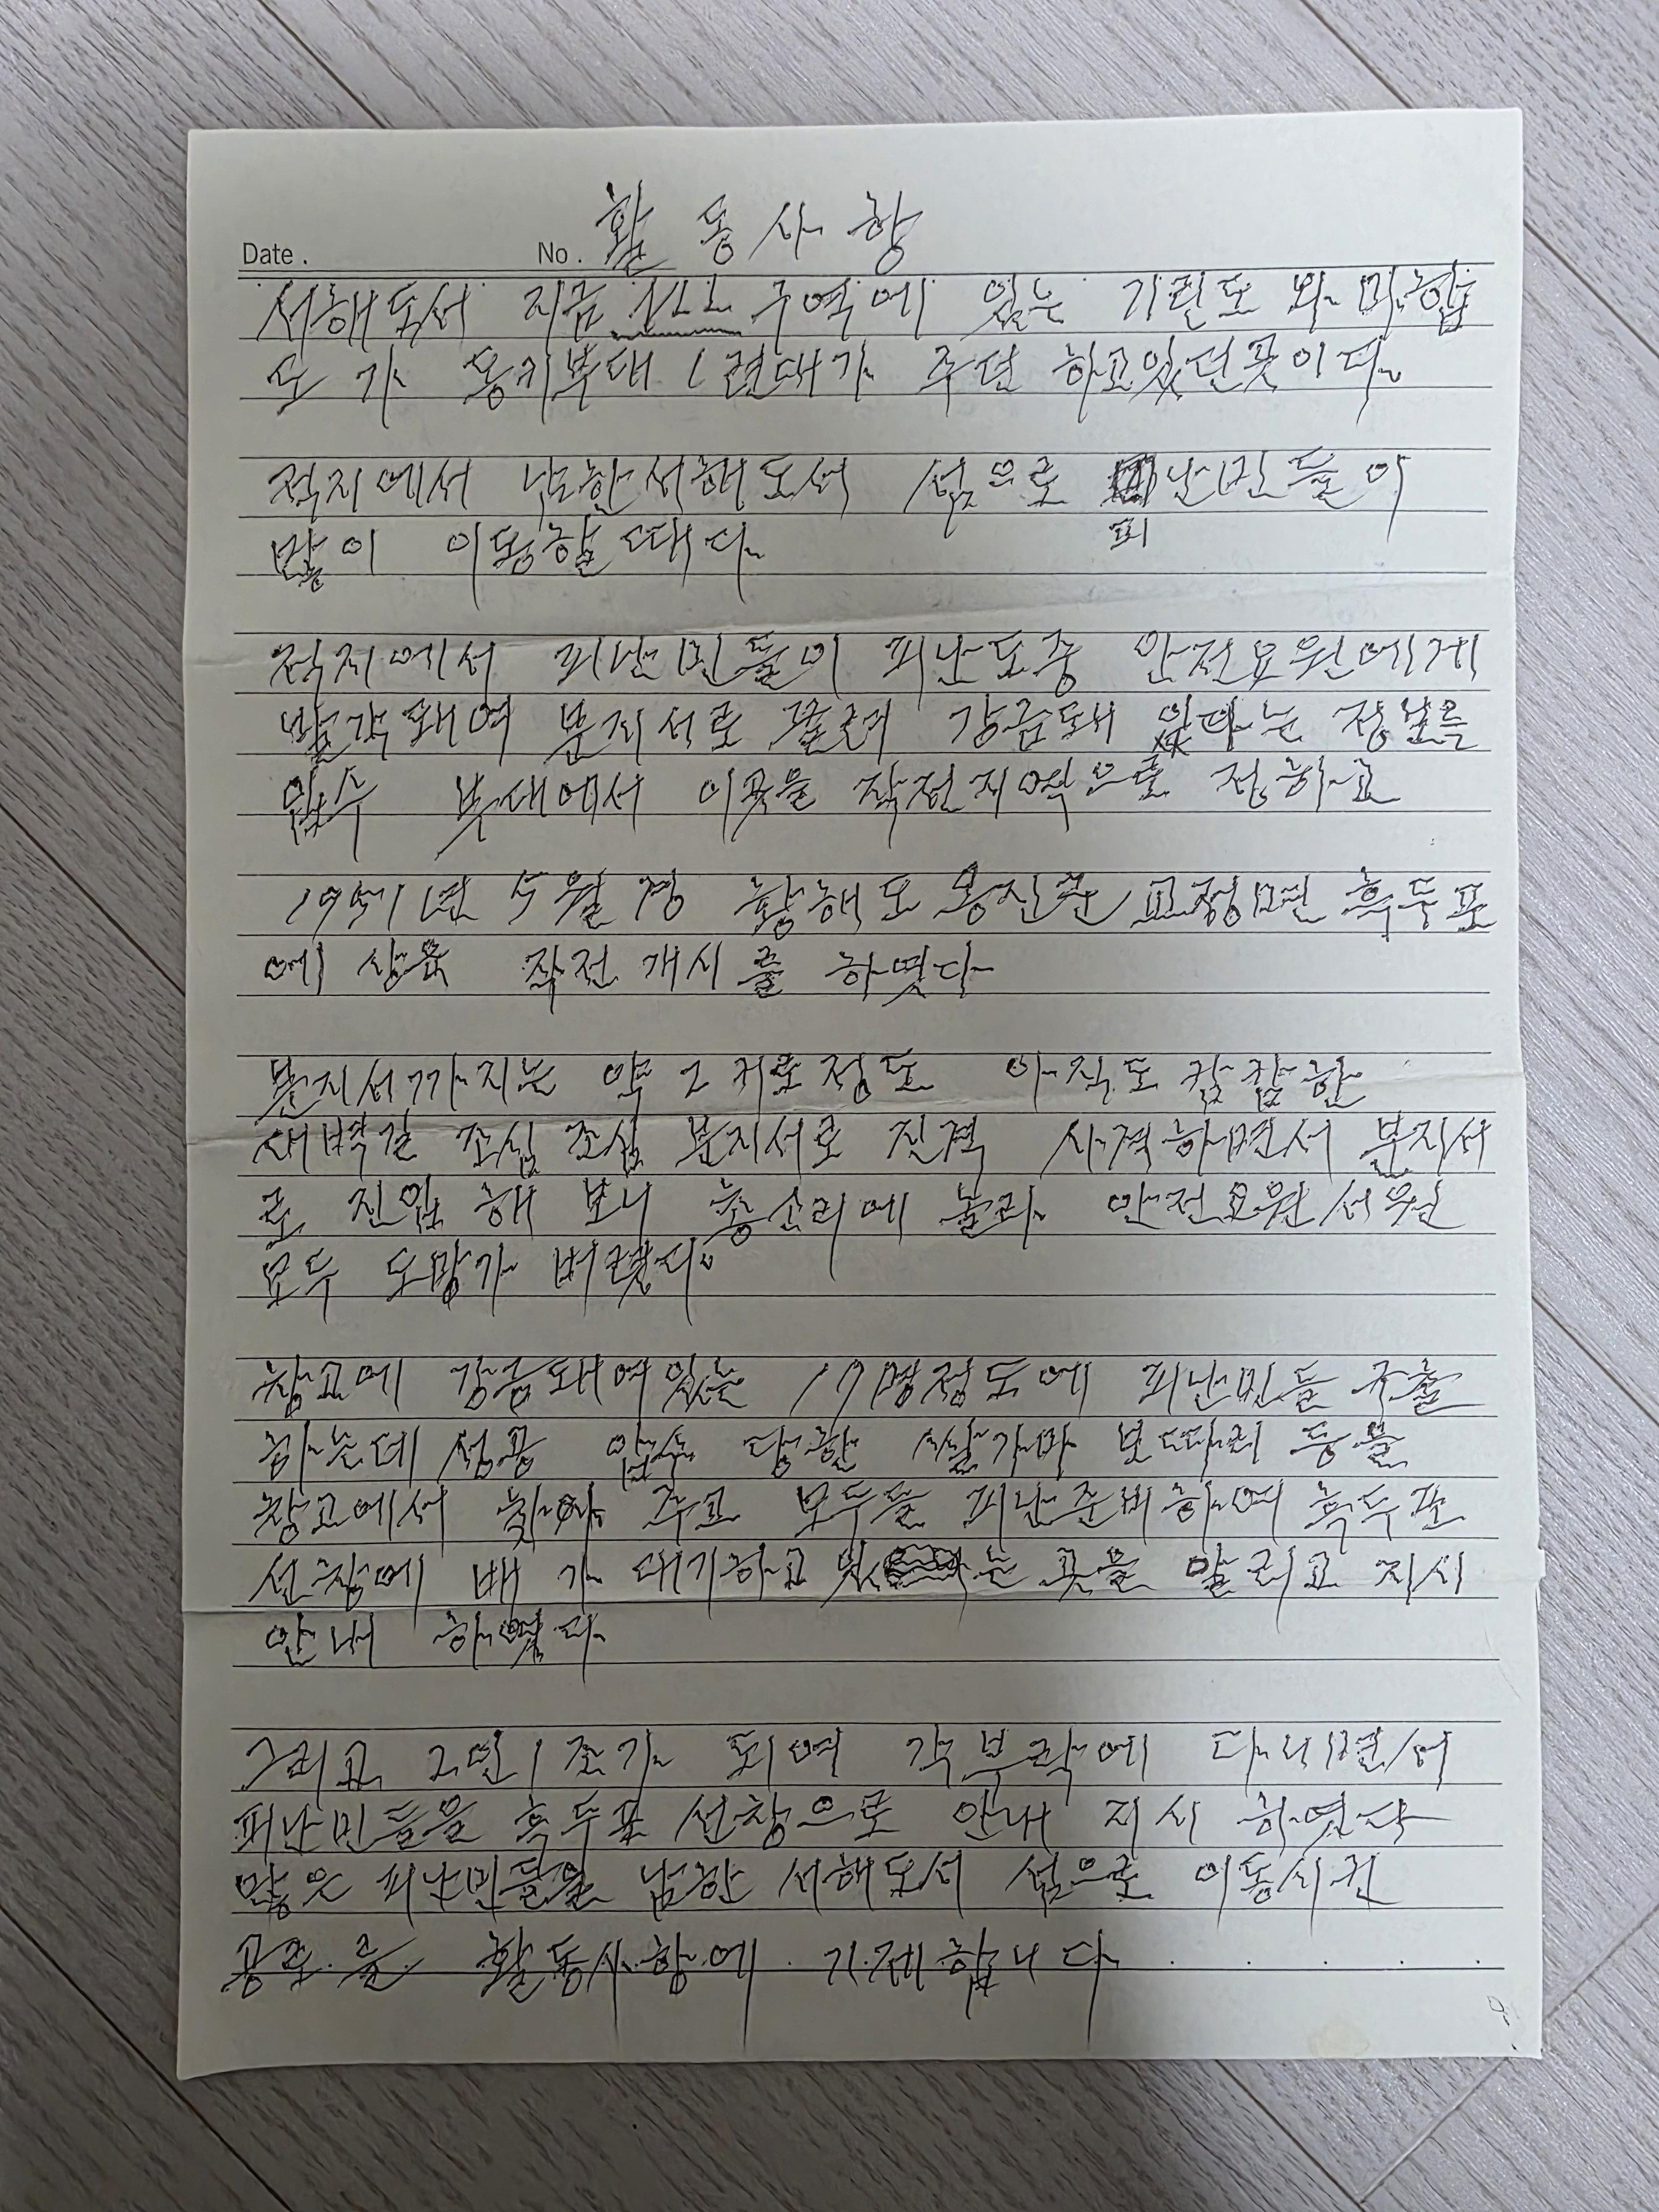 활동사항
Date. No.
서해도서 지금 NLL 구역에 있는 기린도 와 마합
도 가 동키부대 1련대가 주던 하고있던곳이다.
적지에서 남한서해도서 섬으로 난민들이
피
많이 이동할때다.
적지에서 피난민들이 피난도중 안전요원에게
발각돼여 분지서로 끌려 강금돼 있다는 정보를
입수 부대에서 이곳을 작전지역으로 정하고
1951년 5월경 황해도 옹진군 교정면 흑두포
에 상육 작전 개시를 하엿다
분지서까지는 약 2키로정도 아직도 캄캄한
새벽길 조심 조심 분지서로 진격 사격하면서 분지서
로 진입 해 보니 총소리에 놀라 안전요원 서원
모두 도망가 버렷다.
창고에 강금돼여있는 17명정도에 피난민들 구출
하는데 성공 압수 당한 쌀가마 보따리 등을
창고에서 찾아 주고 모두들 피난준비하여 흑두포
선창에 배 가 대기하고 있는 곳을 알리고 지시
안내 하였다
그리고 2인1조가 되여 각부락에 다니면서
피난민들을 흑두포 선창으로 안내 지시 하엿다
많은 피난민들을 남한 서해도서 섬으로 이동시킨
공로를 활동사항에 기제합니다